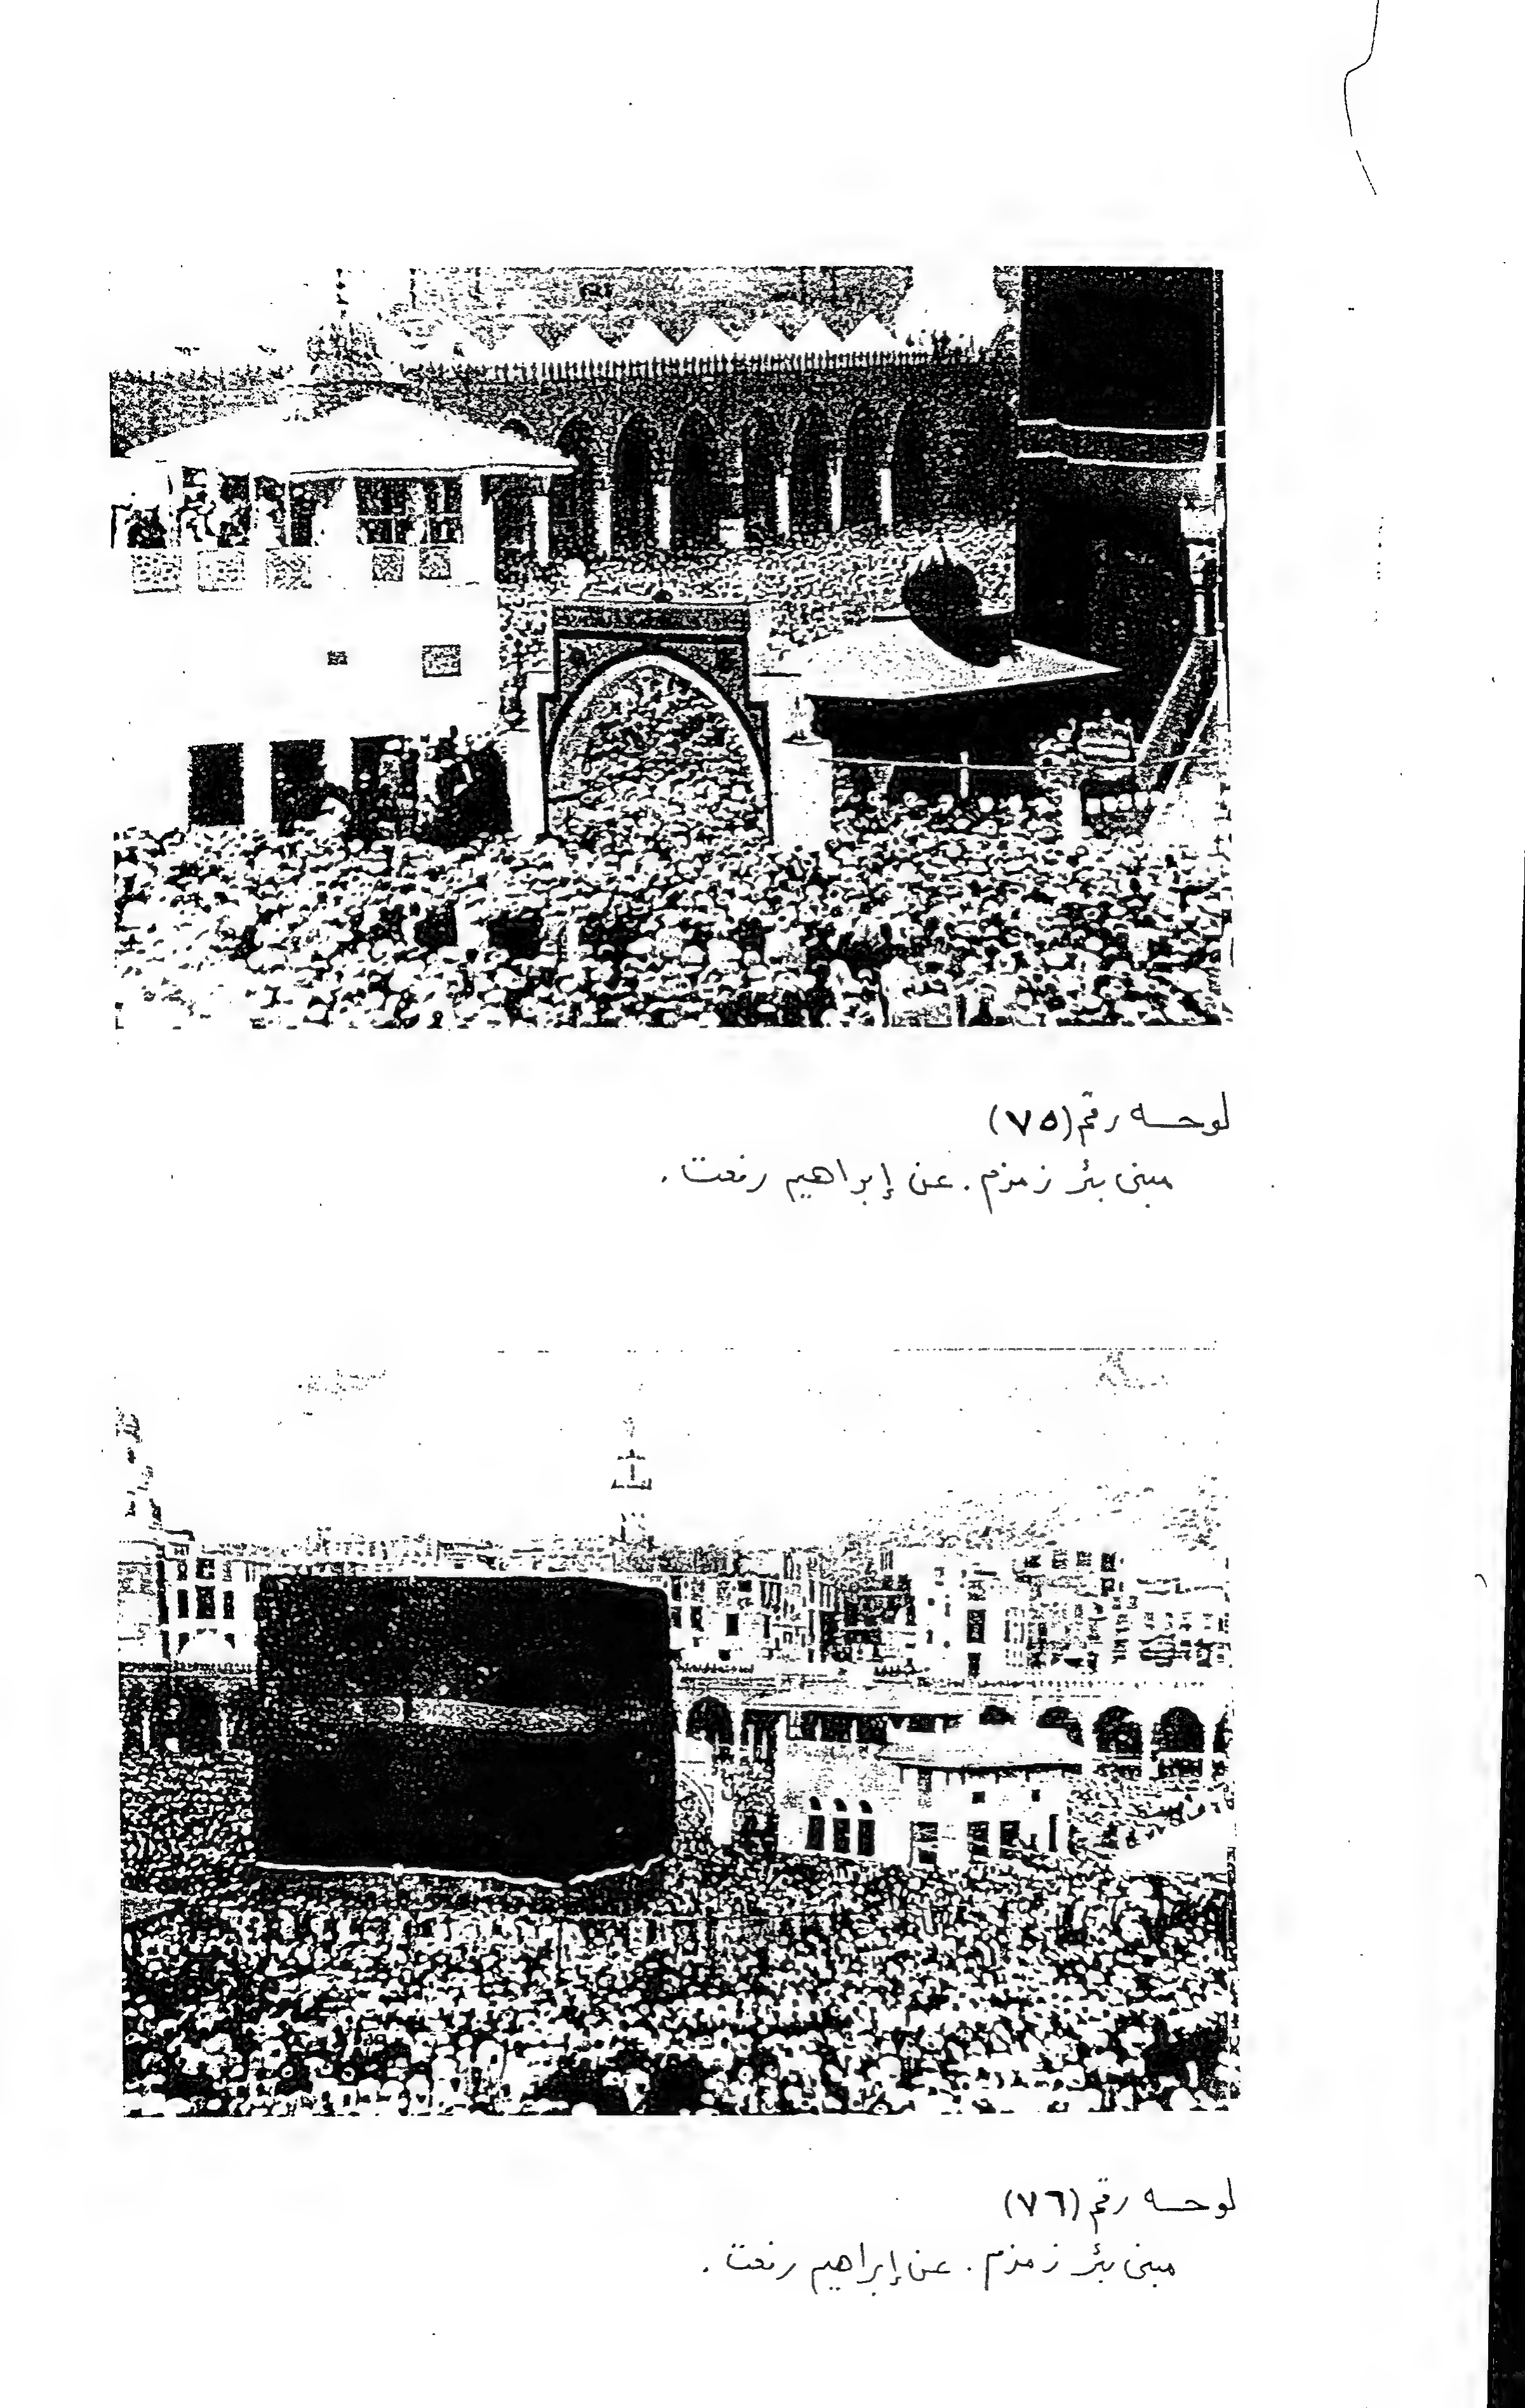 لوحه رقم (٧٥)
مبنى بئر زمزم . عن إبراهيم رفعت .
لوحه رقم (٧٦)
مبنى بئر زمزم . عن إبراهيم رفعت .